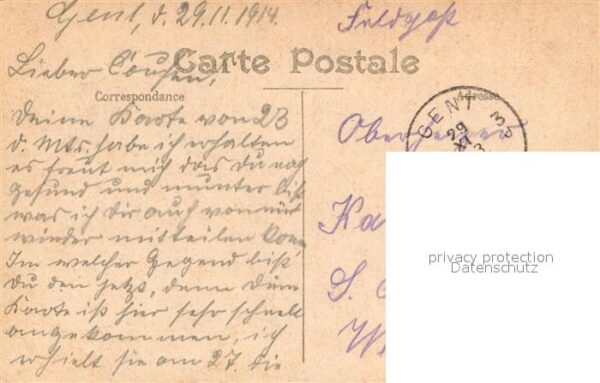 Gent, d. 29.11.1914.
Feldpost
Carte Postale
Lieber Cousin,
Correspondance
Adresse
Deine Karte von 23
d. Mts. habe ich erhalten
es freut mich das du noch
gesund und munter bist
was ich dir auch von mir
wieder mitteilen kann
Im welcher Gegend bist
Du den jetzt, denn deine
Karte ist hier sehr schnell
angekommen, ich
erhielt sie am 27. die
GENT
29
XI
Oberheizer
Ka
S.
privacy protection
Datenschutz